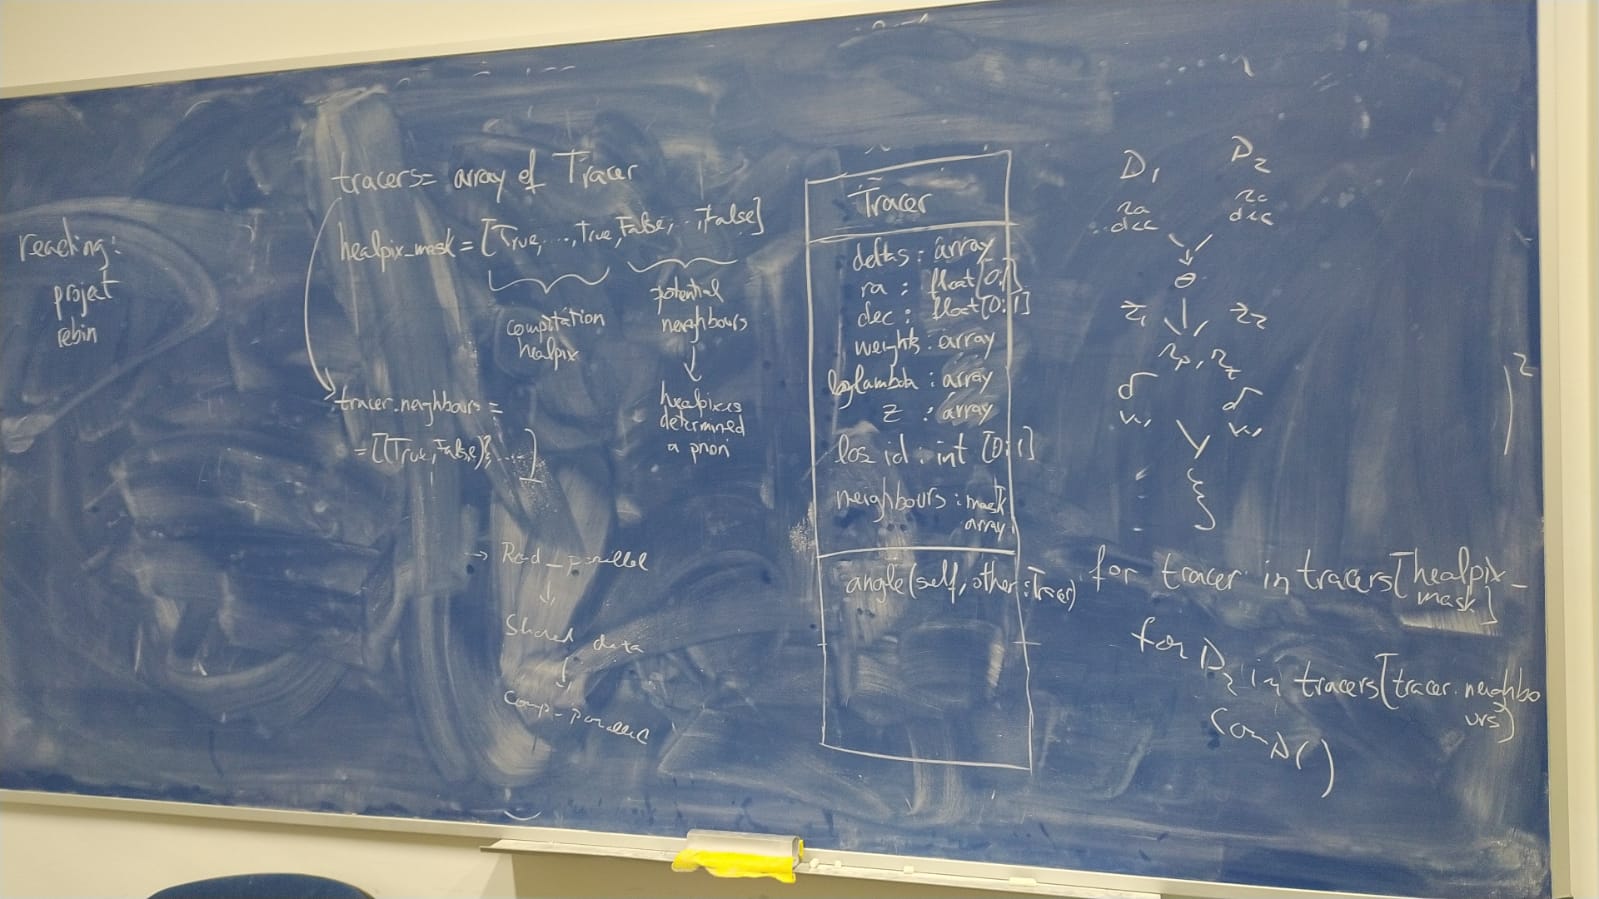 reading:
project
rebin
tracers = array of Tracer
healpix_mask = [True, ..., True, False, .., False]
computation
healpix
potential
neighbours
healpixes
determined
a priori
tracer.neighbours =
= [(True, False), ...]
→ Read_parallel
↓
Shared data
↓
Comp-parallel
Tracer
deltas : array
ra : float [0:1]
dec : float [0:1]
weights : array
loglambda : array
z : array
los id : int [0:1]
neighbours : mask
array
angle(self, other : Tracer)
D₁ D₂
ra ra
dec dec
θ
z₁ z₂
for tracer in tracers[healpix_
mask]
for D₂ in tracers[tracer.neighbo
urs]